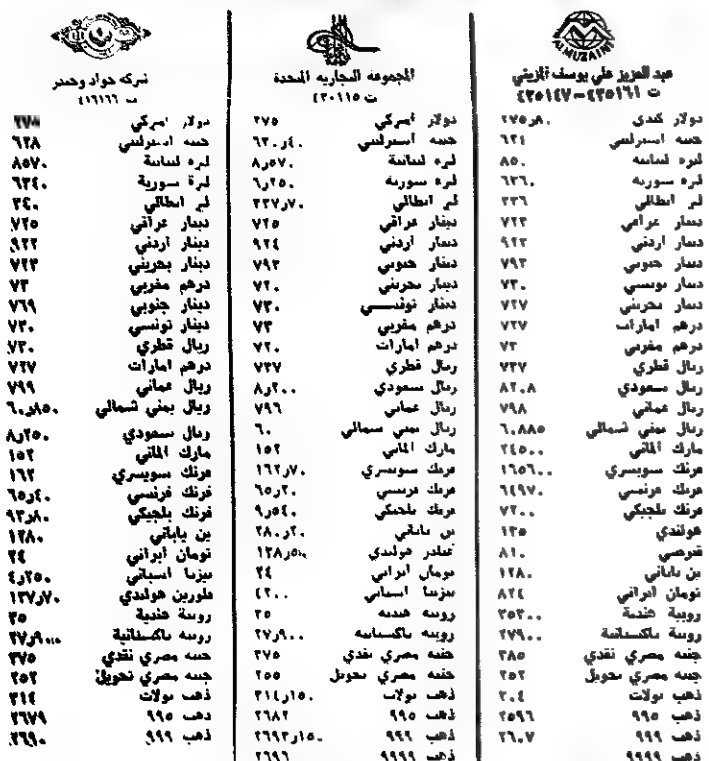 ALMUZAINI
عبد العزيز علي يوسف المزيني
ت ٤٣٥١٦١-٤٣٥١٤٧
دولار كندي ٢٧٥ر٨٠
جنيه استرليني ٦٣٤
ليرة لبنانية ٨٥٠
ليره سوريه ٦٣٦٠
لير ايطالي ٣٣٦
دينار عراقي ٧٢٣
دينار اردني ٩٢٣
دينار جنوبي ٧٩٣
دينار تونسي ٧٣٠
دينار بحريني ٧٢٧
درهم امارات ٧٢٧
درهم مغربي ٧٣
ريال قطري ٧٣٧
ريال سعودي ٨٢٠٨
ريال عماني ٧٩٨
ريال يمني شمالي ٦٠٨٨٥
مارك ألماني
فرنك سويسري ١٦٥٦٠٠
فرنك فرنسي ٦٤٩٧٠
فرنك بلجيكي ٧٢٠٠
هولندي ١٣٥
قبرصي ٨١٠
ين ياباني ١٢٨٠
تومان ايراني ٨٢٤
روبية هندية ٣٥٣٠٠
روبية باكستانية ٢٧٩٠٠
جنيه مصري نقدي ٣٨٥
جنيه مصري تحويل ٢٥٢
ذهب تولات ٣٠٤
ذهب ٩٩٥ ٢٥٩٦
ذهب ٩٩٩ ٢٦٠٧
ذهب ٩٩٩٩
المجموعه التجاريه المتحدة
ت ٤٣٠١١٥
دولار أميركي ٢٧٥
جنيه استرليني ٦٣٠ر٤٠
ليره لبنانية ٨ر٥٧٠
ليره سوريه ٦ر٢٥٠
لير ايطالي ٣٣٧ر٧٠
دينار عراقي ٧٢٥
دينار اردني ٩٢٤
دينار جنوبي ٧٩٣
دينار بحريني ٧٢٠
دينار تونسي ٧٣٠
درهم مغربي ٧٣
درهم امارات ٧٢٠
ريال قطري ٧٣٧
ريال سعودي ٨ر٢٠٠
ريال عماني ٧٩٦
ريال يمني شمالي ٦٠
مارك الماني ١٥٢
فرنك سويسري ١٦٢ر٧٠
فرنك فرنسي ٦٥ر٢٠
فرنك بلجيكي ٩ر٥٤٠
ين ياباني
هولندي
تومان ايراني ٢٤
بيزيتا اسباني ٤٢٠٠
روبيه هنديه ٣٥
روبيه باكستانيه ٢٧ر٩٠٠
جنيه مصري نقدي ٣٧٥
جنيه مصري تحويل ٢٥٥
ذهب تولات ٣١٤ر١٥٠
ذهب ٩٩٥ ٢٦٨٢
ذهب ٩٩٩ ٢٦٩٣ر١٥٠
ذهب ٩٩٩٩ ٢٦٩٦
شركه جواد وحيدر
ت ٤١٦١٦٦
دولار اميركي
جنيه استرليني ٦٢٨
ليره لبنانية ٨٥٧٠
ليرة سورية ٦٢٤٠
لير ايطالي ٣٤٠
دينار عراقي ٧٢٥
دينار اردني ٩٢٢
دينار بحريني ٧٢٣
درهم مغربي ٧٣
دينار جنوبي ٧٦٩
دينار تونسي ٧٣٠
ريال قطري ٧٣٠
درهم امارات ٧٢٧
ريال عماني ٧٩٩
ريال يمني شمالي ٦٠ر٨٥٠
ريال سعودي ٨ر٢٥٠
مارك الماني ١٥٢
فرنك سويسري ١٦٢
فرنك فرنسي ٦٥ر٤٠
فرنك بلجيكي ٩٣ر٨٠
ين ياباني ١٢٨٠
تومان ايراني ٢٤
بيزيتا اسباني ٤ر٢٥٠
فلورين هولندي ١٣٧ر٧٠
روبية هندية ٣٥
روبيه باكستانية
جنيه مصري نقدي ٣٧٥
جنيه مصري تحويل ٢٥٢
ذهب تولات ٣١٤
ذهب ٩٩٥ ٢٦٧٩
ذهب ٩٩٩ ٢٦٩٠